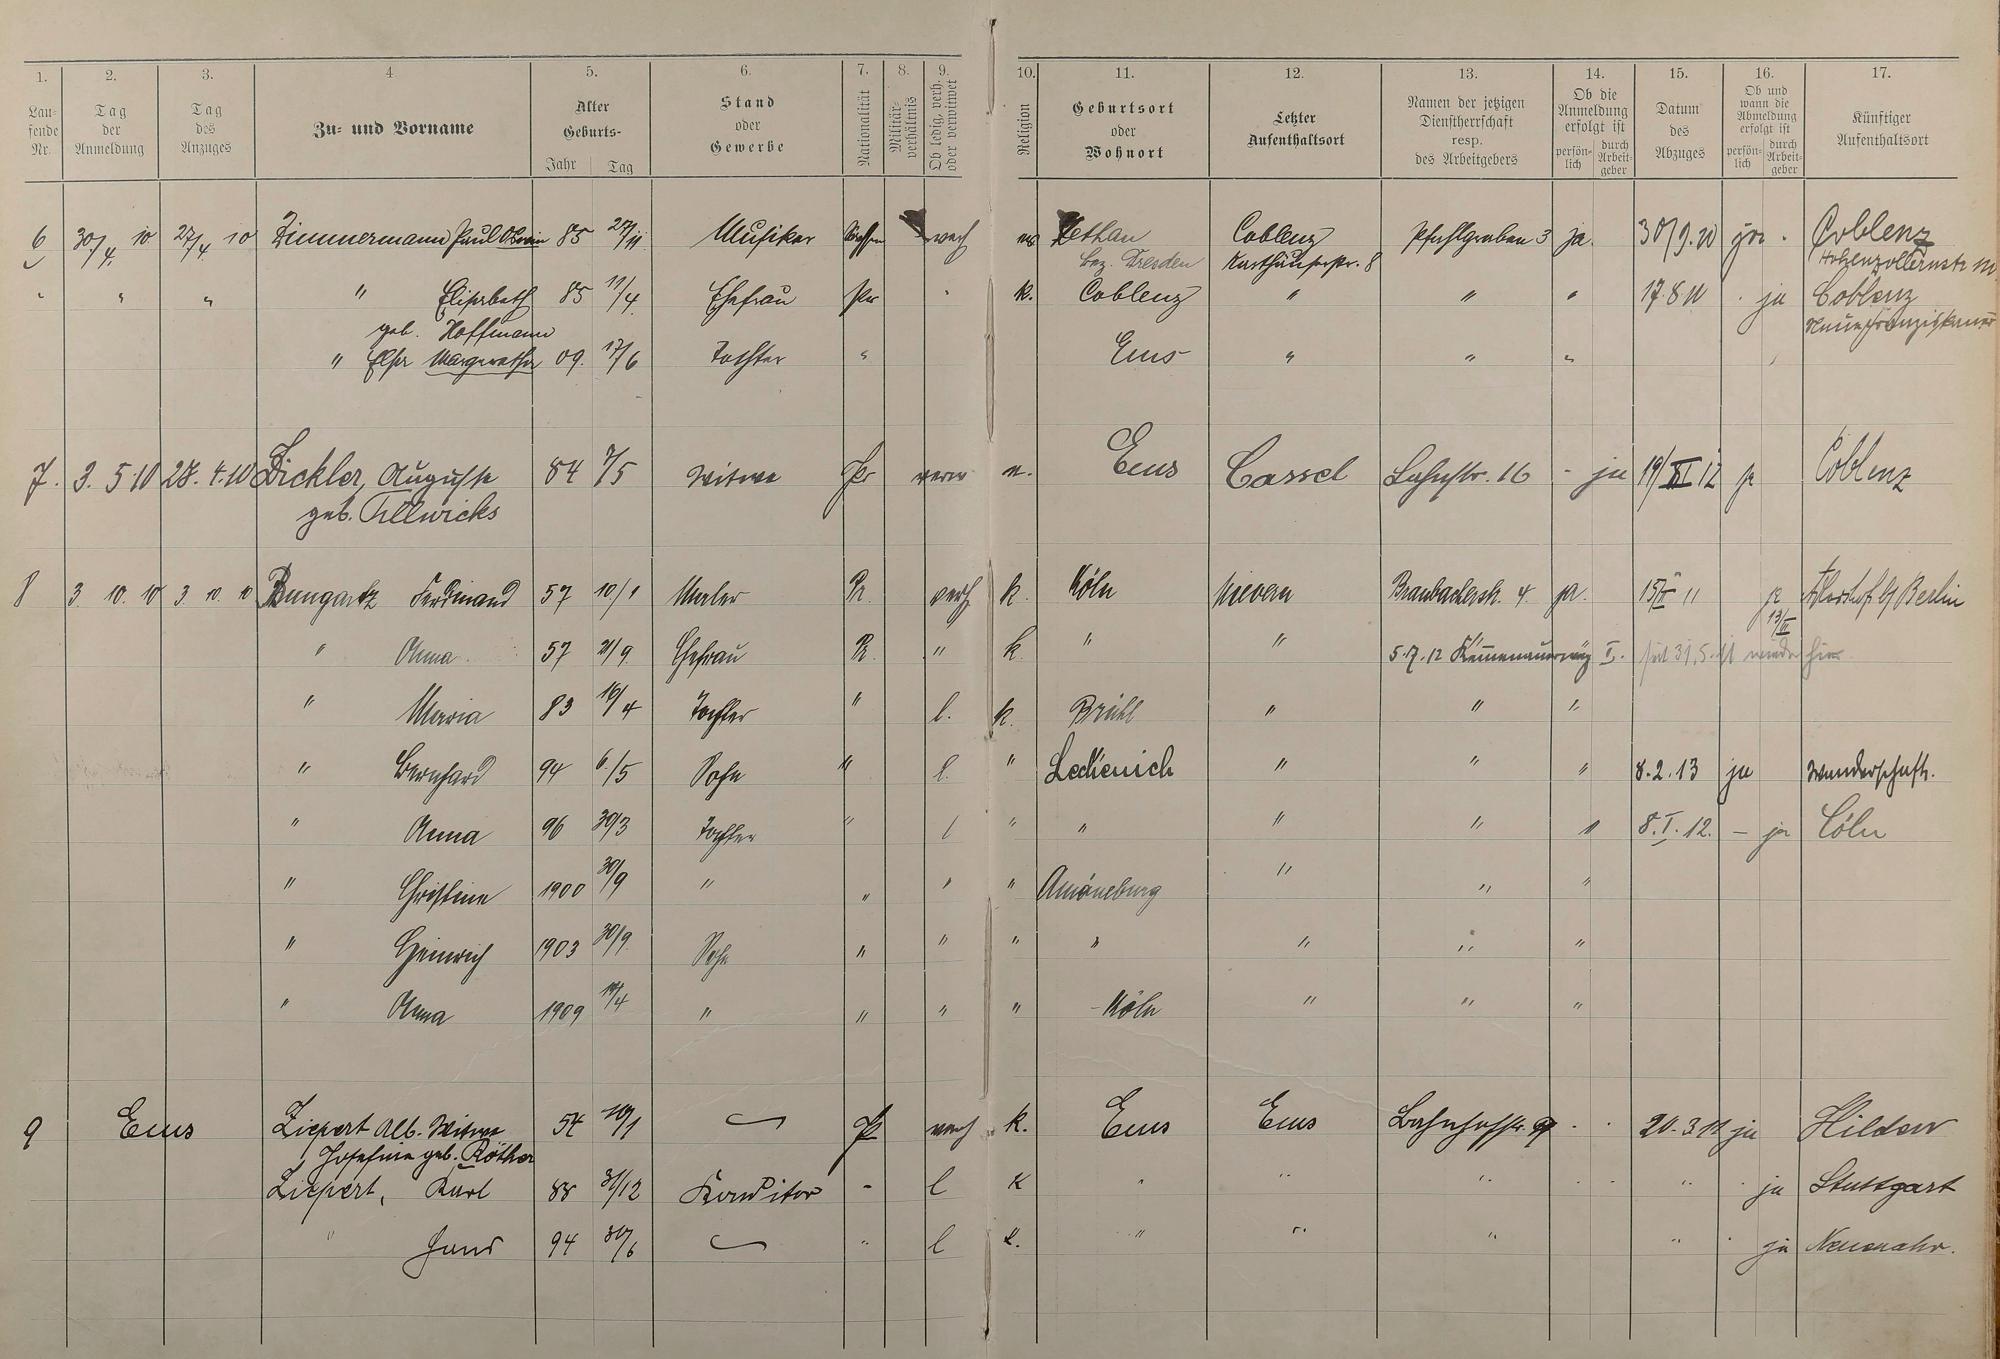 1. 2. 3. 4 5. 6. 7. 8. 9. 10. 11. 12. 13. 14. 15. 16. 17.
Laufende Nr.
Tag der Anmeldung
Tag des Anzuges
Zu= und Vorname
Alter Geburts- Jahr Tag
Stand oder Gewerbe
Nationalität
Militärverhältnis
Ob ledig, verh. oder verwitwet
Religion
Geburtsort oder Wohnort
Letzter Aufenthaltsort
Namen der jetzigen Dienstherrschaft resp. des Arbeitgebers
Ob die Anmeldung erfolgt ist persönlich durch Arbeitgeber
Datum des Abzuges
Ob und wann die Abmeldung erfolgt ist persönlich durch Arbeitgeber
Künftiger Aufenthaltsort
6 30/4. 10 27/4 10 Zimmermann Paul 85 27/11 Musiker verh Coblenz Pfuhlgraben 3 ja. 30/9.10 ja . Coblenz
Bez. Dresden 8 Hohenzollernstr
" " " " Elisabeth 85 11/4 Ehefrau Pr " k. Coblenz " " " 17.8.10 . ja Coblenz
geb. Hoffmann
" Else Margarethe 09. 17/6 Tochter " Ems " " "
7. 3. 5 10 28. 4. 10 Zickler, Auguste 84 7/5 Witwe Pr verw Ems Cassel Lahnstr. 16 - ja 19/XI 12 ja Coblenz
geb. Tillwicks
8 3. 10. 10 3. 10. 10 Bungartz Ferdinand 57 10/1 Maler Pr. verh k. Köln Nievern Braubacherstr. 4. ja. 15/ 11 ja Adlershof b/ Berlin
" Anna 57 21/9. Ehefrau Pr. " k. " " 5.7.12 Kemenauerweg I. seit 31.5. wieder hier
" Maria 83 16/4 Tochter " l. k. Brühl " " "
" Bernhard 94 6/5 Sohn " l. " Lechenich " " " 8.2.13 ja Wanderschaft.
" Anna 96 30/3 Tochter " l " " " " " 8.I.12. — ja Cöln
" Christine 1900 30/9 " " " " Amöneburg " " "
" Heinrich 1903 30/9. Sohn " " " " " " "
" Anna 1909 /4 " " " " Köln " " "
9 Ems Ziepert Alb. Witwe 54 /1 Pr verh k. Ems Ems Bahnhofstr. 9 . . 20.3.11 ja Hilden
Josefine geb. Röther
Ziepert, Karl 88 31/12 Konditor - l K " " " . . " . ja Stuttgart
" Hans 94 30/6 " l K. " " " " . ja Neuenahr.